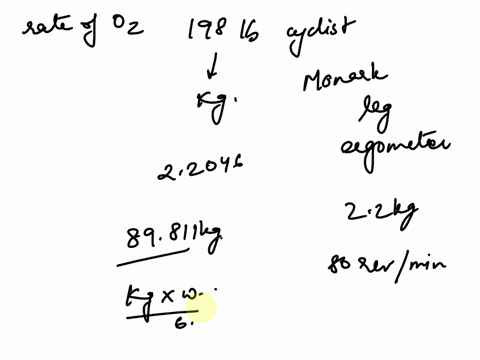 rate of O2 198 lb cyclist
Kg.
Monark
leg
ergometer
2.2046
2.2kg
89.811kg
80 rev/min
Kg x w..
6.